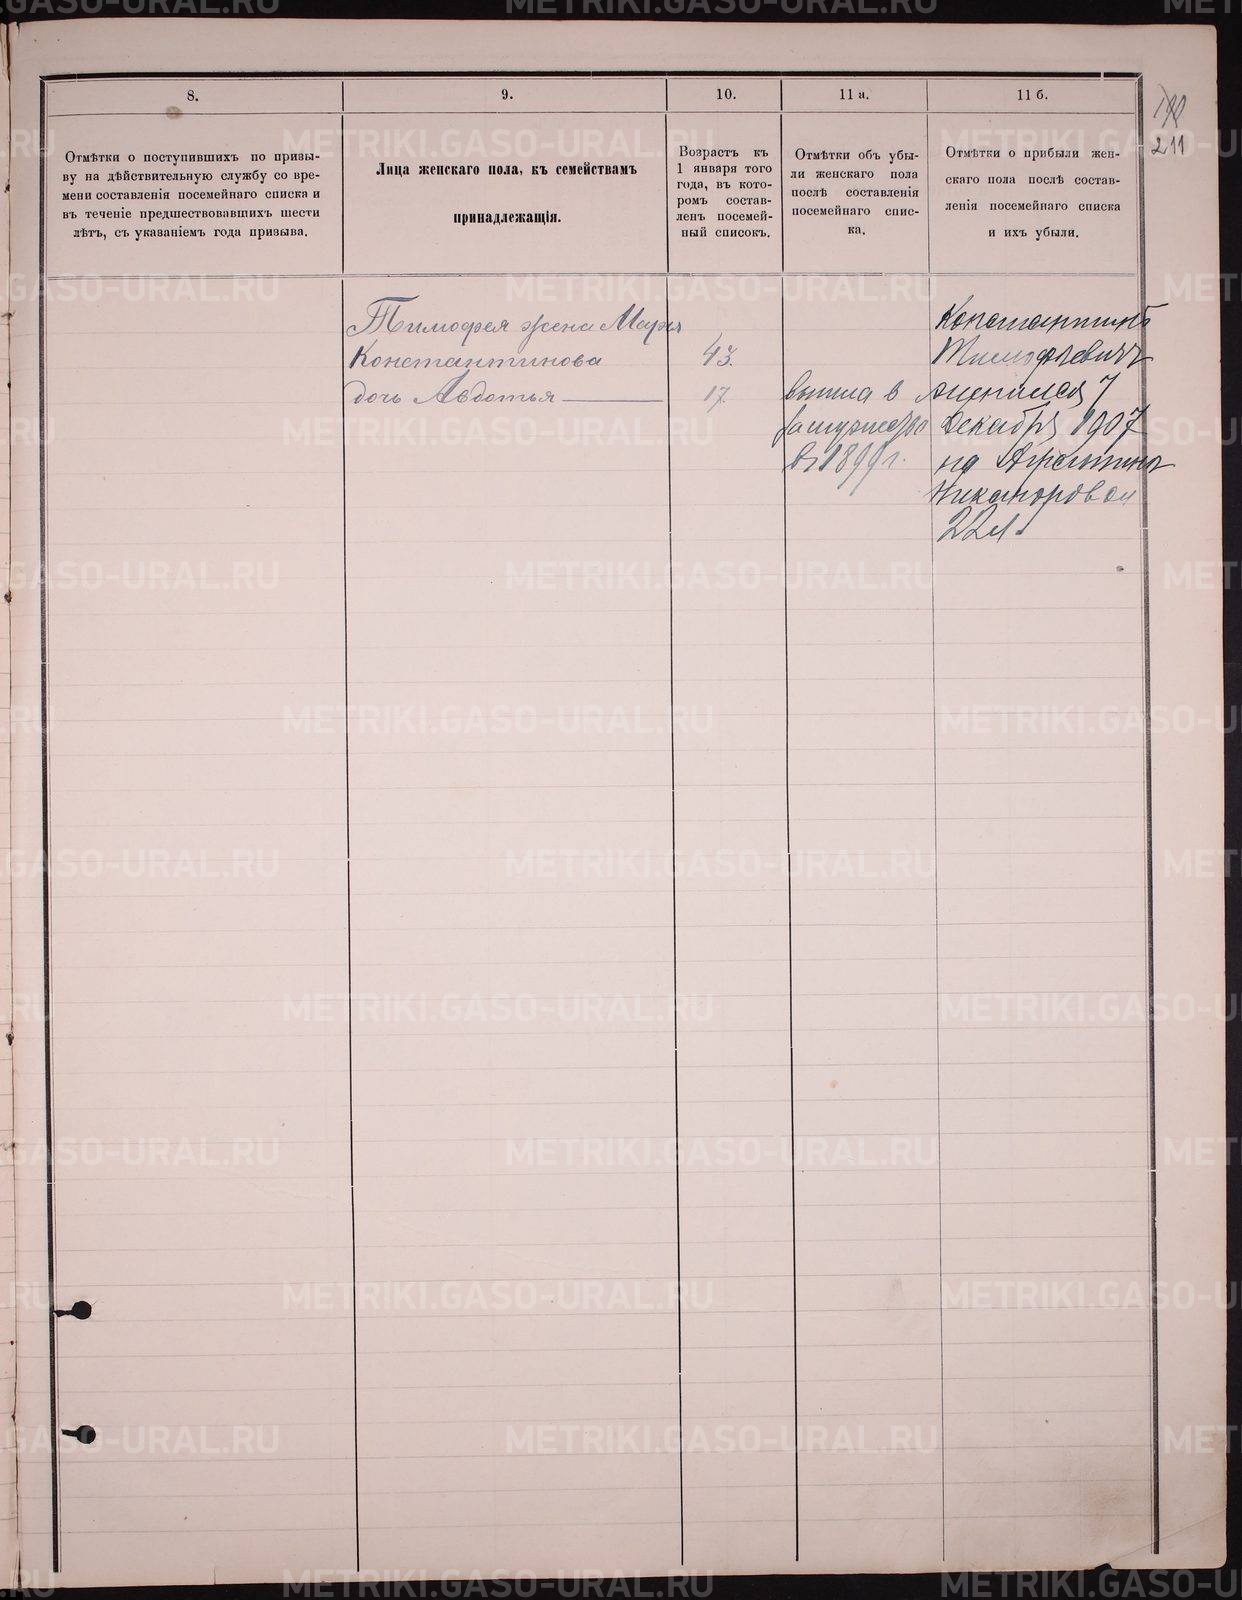 8.
9.
10.
11 а.
11 б.
190
211
Отмѣтки о поступившихъ по призы-
ву на дѣйствительную службу со вре-
мени составленія посемейнаго списка и
въ теченіе предшествовавшихъ шести
лѣтъ, съ указаніемъ года призыва.
Лица женскаго пола, къ семействамъ
принадлежащія.
Возрастъ къ
1 января того
года, въ кото-
ромъ состав-
ленъ посемей-
ный списокъ.
Отмѣтки объ убы-
ли женскаго пола
послѣ составленія
посемейнаго спис-
ка.
Отмѣтки о прибыли жен-
скаго пола послѣ состав-
ленія посемейнаго списка
и ихъ убыли.
Тимофея жена Марья
Константинова
43.
дочь Авдотья
17.
вышла в
замужество
въ 1899 г.
Константинъ
Тимофѣевичъ
женился 7
Декабря 1907
на Агрипинѣ
Никаноровой
22 л.
METRIKI.GASO-URAL.RU